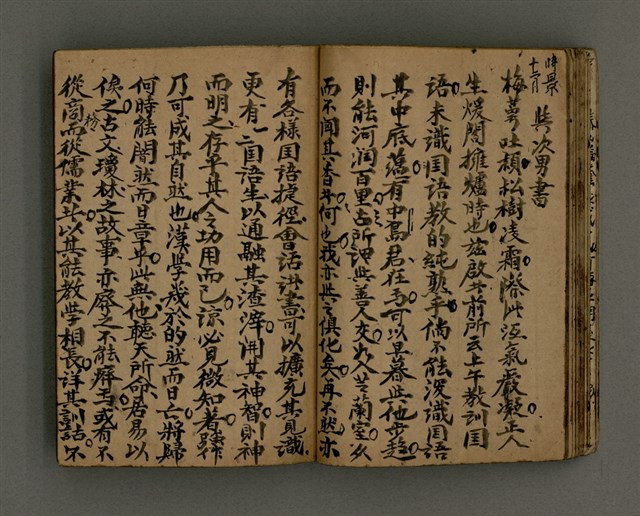 時景
十二月
與次男書
梅萼吐積松樹凌霜際此沍氣嚴凝正人
生煖閣擁爐時也茲啟者前所云上午教訓国
語未識国語教的純熟乎倘不能深識国語
其中底蘊有中島君在焉可以旦暮與他步趨
則能河润百里古所謂與善人交如入芝蘭室久
而不闻其香者何也我亦與之俱化矣再不然亦
有各樣国语捷徑會话讲書可以擴充其見識
更有国语生以通融其渣滓開其神智則神
而明之存乎其人之功用而已諒必見微知著
乃可成其自然也漢學幾於的然而日亡將歸
何時能闇然而日章乎此與他聽天所命居易以
俟之古文瓊林之故事亦廢之不能
從高而從儒業者以其能教學相長詳其訓詁不